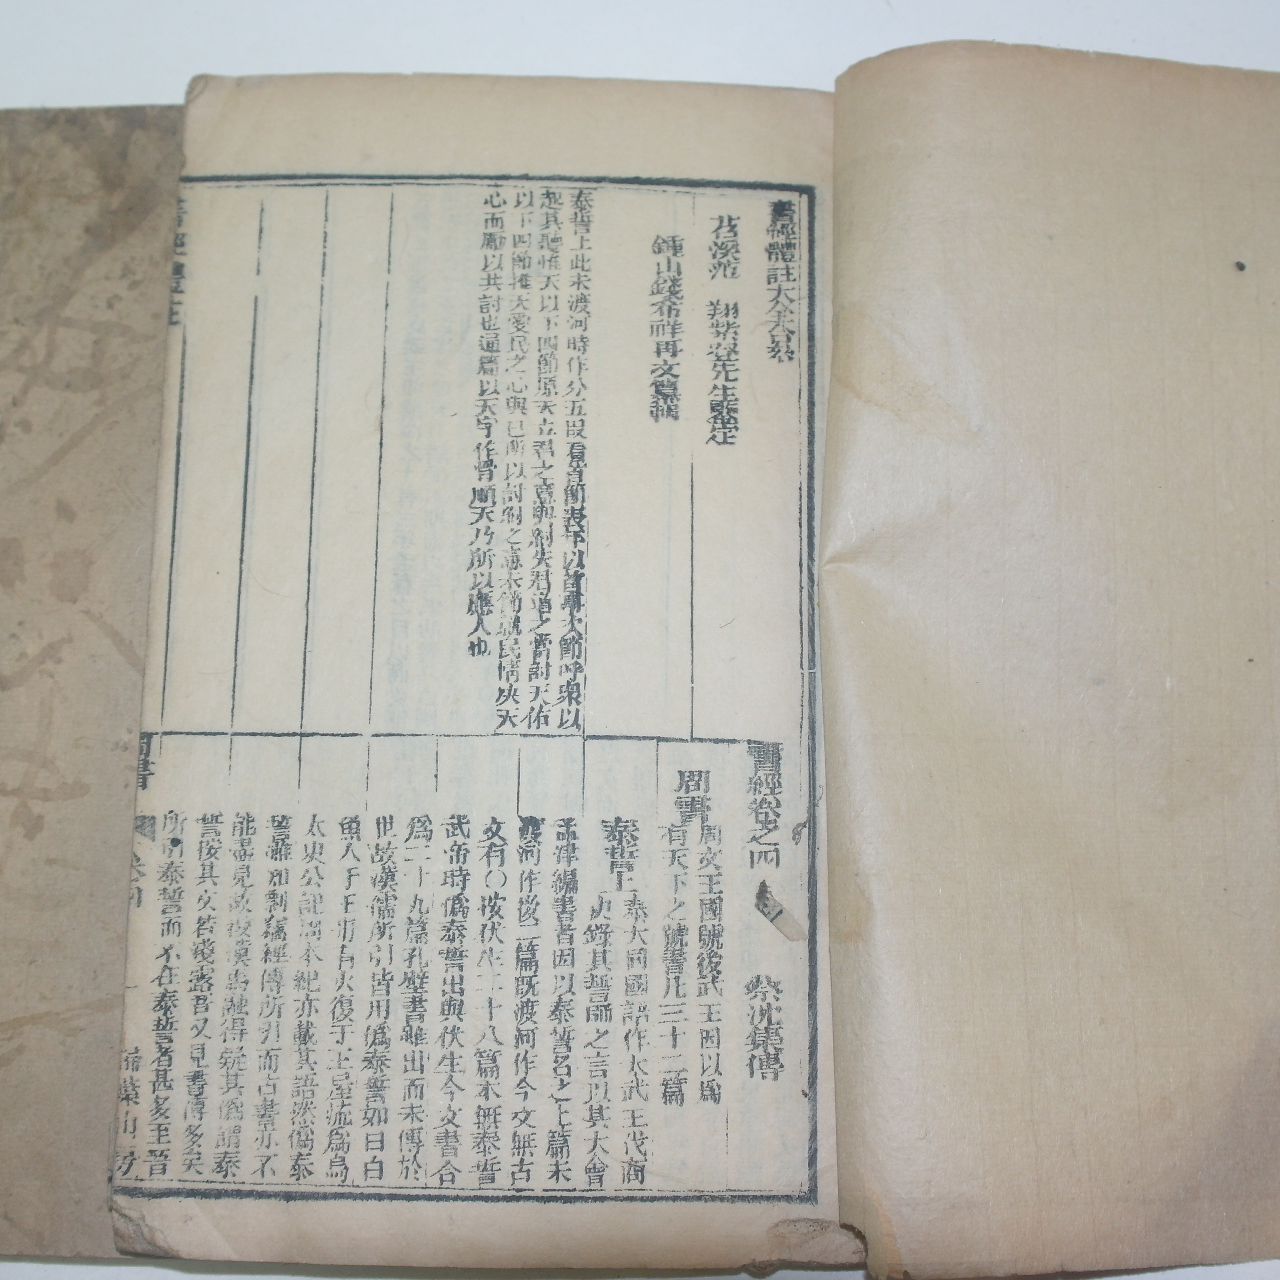 書經體註大全合參
苕溪范　翔紫登先生鑒定
鍾山錢希祥再文纂輯
泰誓上此未渡河時作分五段看首節表年以首事次節呼衆以
起其聽惟天以下四節原天立君之意與紂失君道之當討天佑
以下四節推天愛民之心與己所以討紂之意末節觀民情決天
心而勵以共討也通篇以天字作骨順天乃所以應人也
書經卷之四　蔡沈集傳
周書
周文王國號後武王因以爲
有天下之號書凡三十二篇
泰誓上
泰大同國語作大武王伐商
史錄其誓師之言以其大會
孟津編書者因以泰誓名之上篇未
渡河作後二篇旣渡河作今文無古
文有○按伏生二十八篇本無泰誓
武帝時僞泰誓出與伏生今文書合
爲二十九篇孔壁書雖出而未傳於
世故漢儒所引皆用僞泰誓如曰白
魚入于王舟有火復于王屋流爲烏
太史公記周本紀亦載其語然僞泰
誓雖知剽竊經傳所引而古書亦不
能盡見故後漢馬融得疑其僞謂泰
誓按其文若淺露吾又見書傳多矣
所引泰誓而不在泰誓者甚多至晉
書經體註
周書
卷四
一
掃葉山房